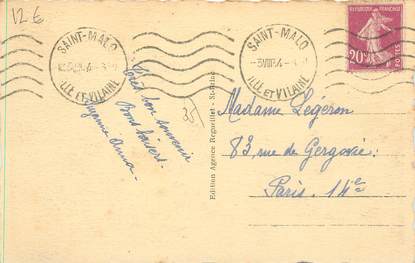 12 €
SAINT-MALO
ILLE ET VILAINE
SAINT-MALO
ILLE ET VILAINE
REPUBLIQUE FRANÇAISE
20c
POSTES
Très bon souvenir
Bons baisers.
Suzanne Anna.
35
Edition Agence Regueillet - St-Malo
Madame Légeron
83, rue de Gergovie.
Paris. 14e